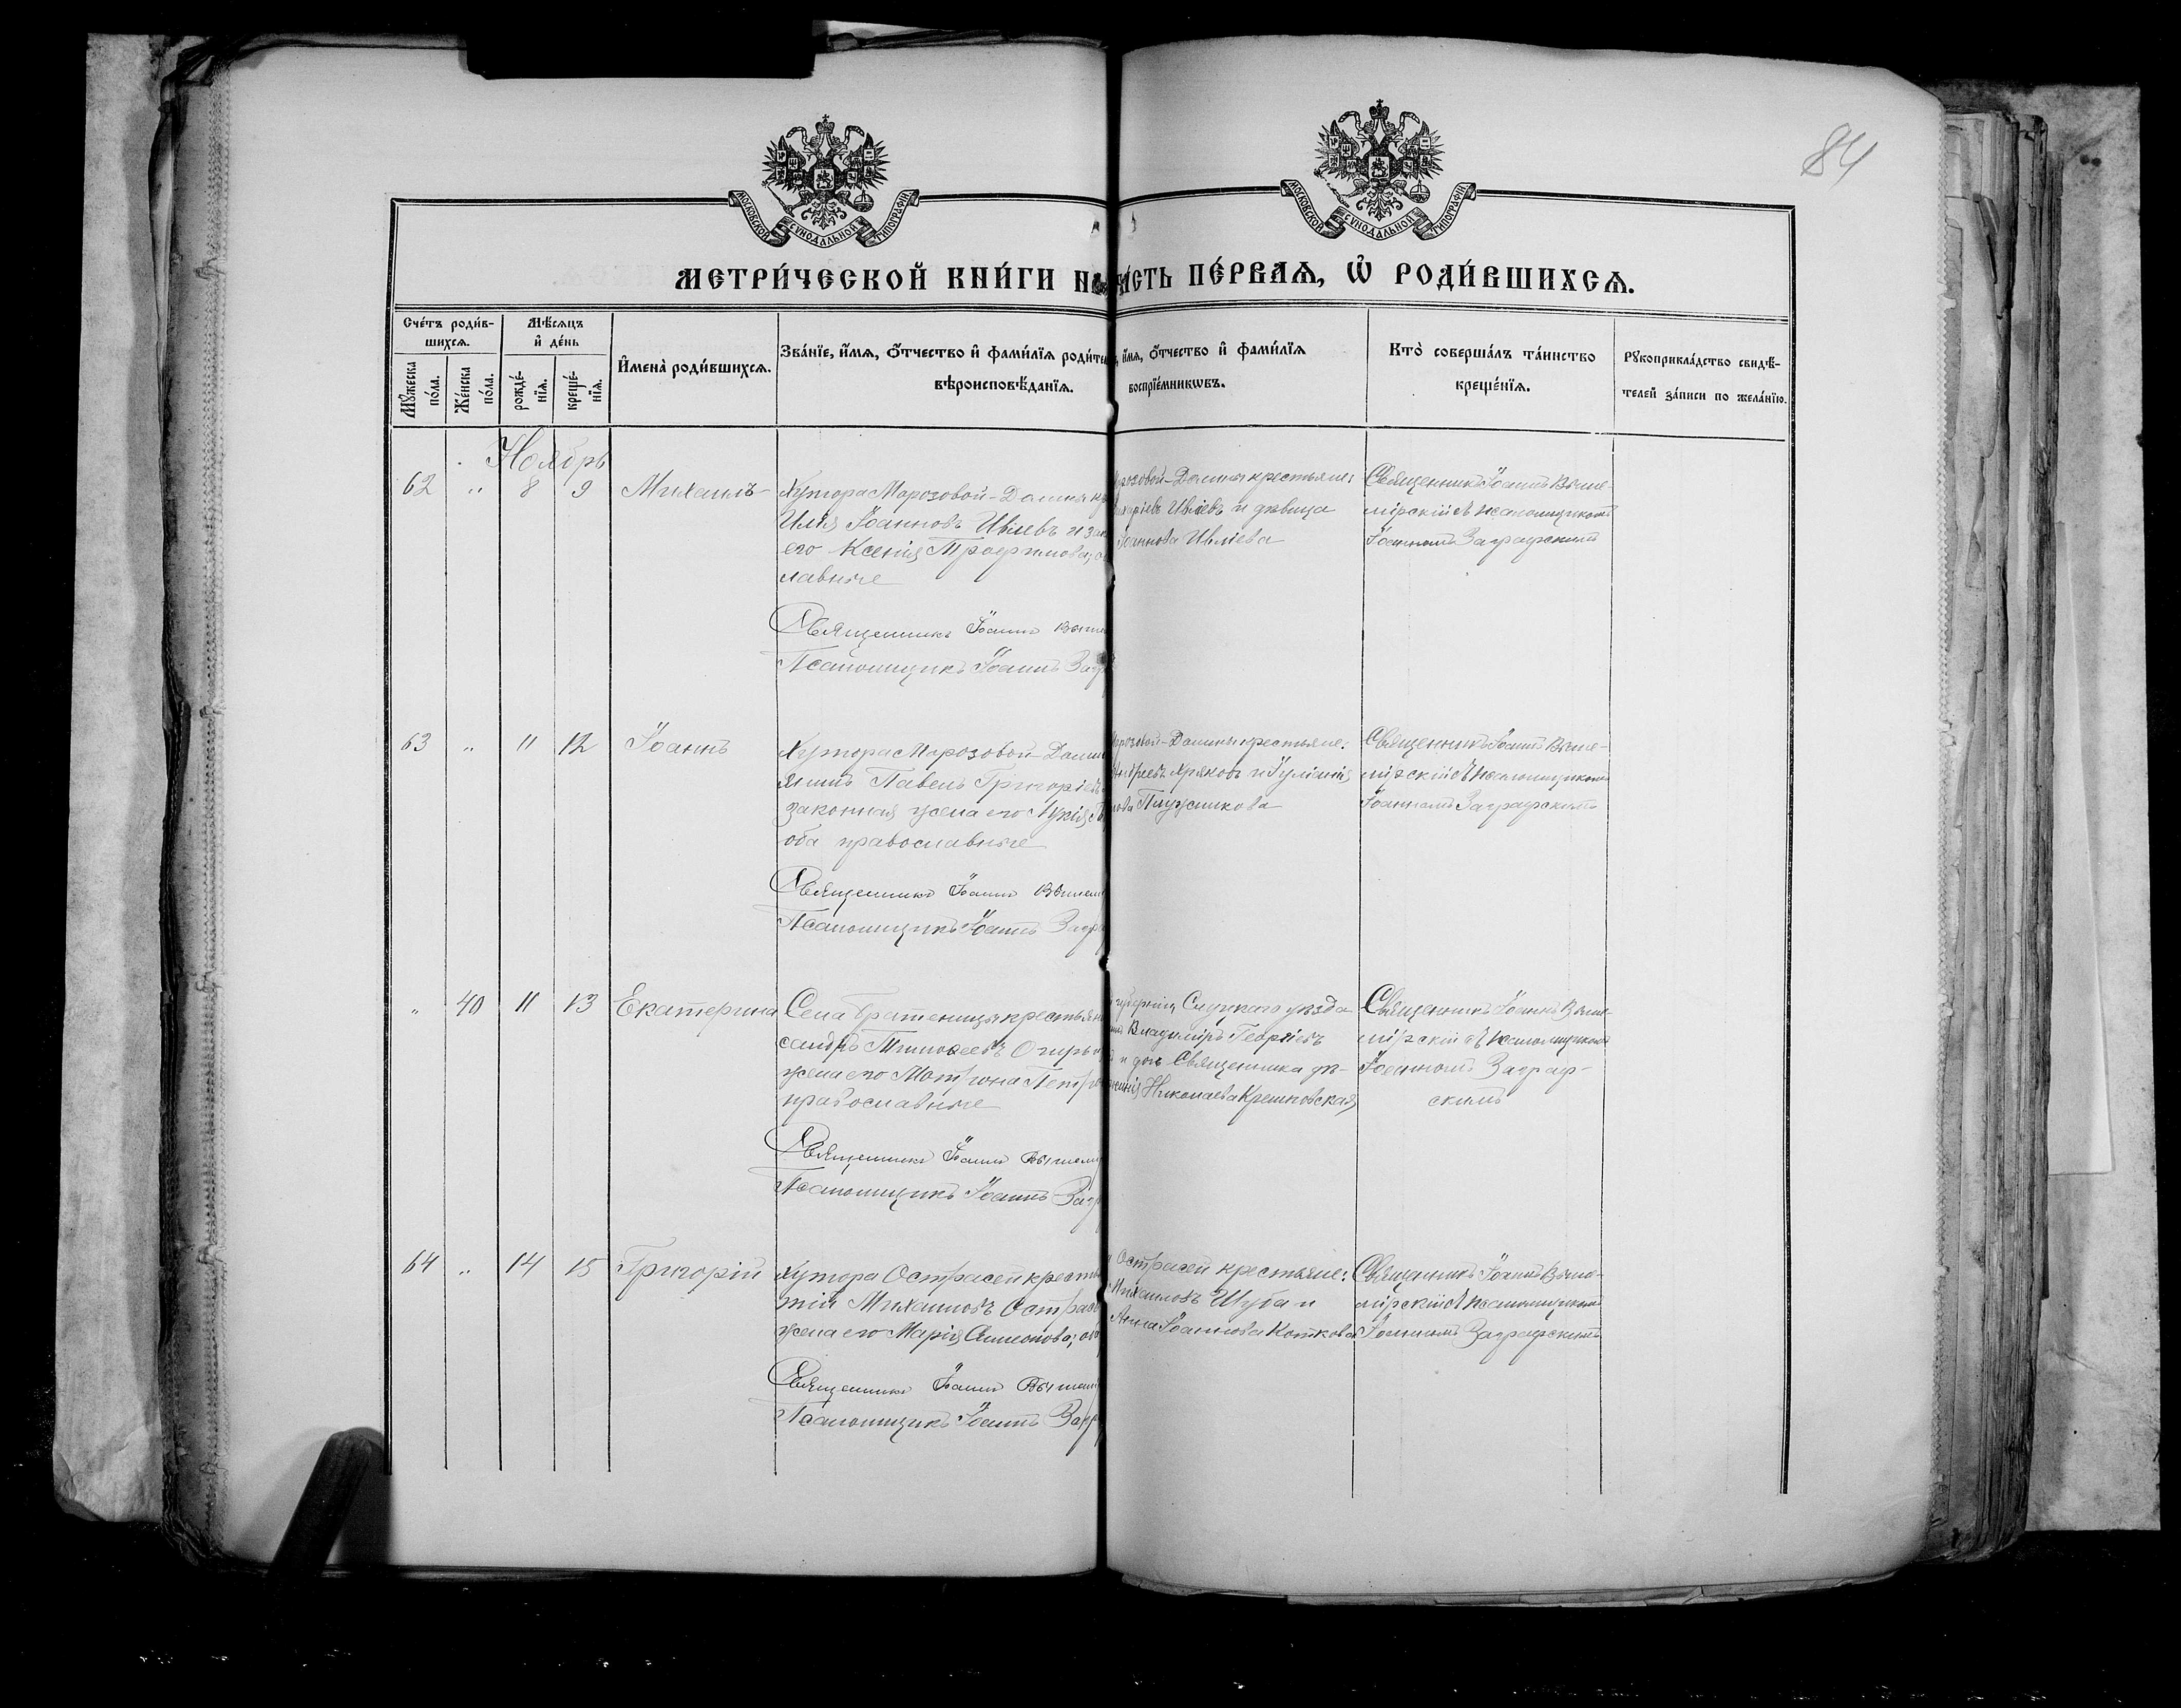 84
МОСКОВСКОЙ СѴНОДАЛЬНОЙ ТИПОГРАФІИ
МОСКОВСКОЙ СѴНОДАЛЬНОЙ ТИПОГРАФІИ
МЕТРИ́ЧЕСКОЙ КНИ́ГИ Н
ЧА́СТЬ ПЕ́РВАѦ, Ѡ҆ РОДИ́ВШИХСѦ.
Сче́тъ роди́в-
шихсѧ.
Мꙋ́жеска по́ла.
Же́нска по́ла.
Мѣ́сѧцъ
и҆ де́нь
рожде́-
нїѧ.
креще́-
нїѧ.
И҆мена̀ роди́вшихсѧ.
Зва́нїе, и҆́мѧ, ѻ҆́тчество и҆ фами́лїѧ роди́те
вѣроисповѣ́данїѧ.
и҆́мѧ, ѻ҆́тчество и҆ фами́лїѧ
воспрїе́мникѡвъ.
Кто̀ соверша́лъ та́инство
креще́нїѧ.
Рꙋкоприкла́дство свидѣ́-
телей за́писи по жела́нїю.
Ноябрь
62 " 8 9 Михаилъ
Хутора Морозовой-Долины
Илія Іоанновъ Ивліевъ и зак
его Ксенія Трофимова;
лавные
Священникъ Іоаннъ Выше
Псаломщикъ Іоаннъ Загр
розовой-Долины крестьяне:
Ивліевъ и дѣвица
Іоаннова Ивліева
Священникъ Іоаннъ Выше-
мірскій съ псаломщикомъ
Іоанномъ Заграфскимъ
63 " 11 12 Іоаннъ
Хутора Морозовой-Долин
янинъ Павелъ Григоріевъ
законная жена его Лукія
оба православные
Священникъ Іоаннъ Вышем
Псаломщикъ Іоаннъ Загр
розовой-Долины крестьяне:
Андреевъ Хряковъ и Іуліанія
нова Плужникова
Священникъ Іоаннъ Выше-
мірскій съ псаломщикомъ
Іоанномъ Заграфскимъ
" 40 11 13 Екатерина
Села Братеницы крестьян
сандръ Тимоѳеевъ
жена его Матрона Петро
православные
Священникъ Іоаннъ Вышем
Псаломщикъ Іоаннъ Загр
губерніи, Слуцкаго уѣзда
Владиміръ Георгіевъ
и дочь Священника дѣ-
Николаева Крешковская
Священникъ Іоаннъ Выше-
мірскій съ псаломщикомъ
Іоанномъ Заграф-
скимъ
64 " 14 15 Григорій
Хутора Острасей кресть
тій Михаиловъ Острас
жена его Марія Симеонова; оба
Священникъ Іоаннъ Вышем
Псаломщикъ Іоаннъ Загр
Острасей крестьяне:
Михаиловъ Шуба и
Анна Іоаннова Коткова
Священникъ Іоаннъ Выше-
мірскій съ псаломщикомъ
Іоанномъ Заграфскимъ